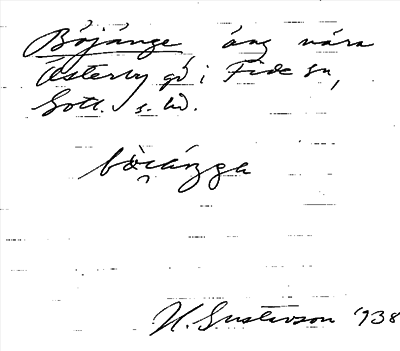 Böjänge äng nära
Österby gd i Fide sn,
Gotl. s. hd.
H. Gustavson 1938